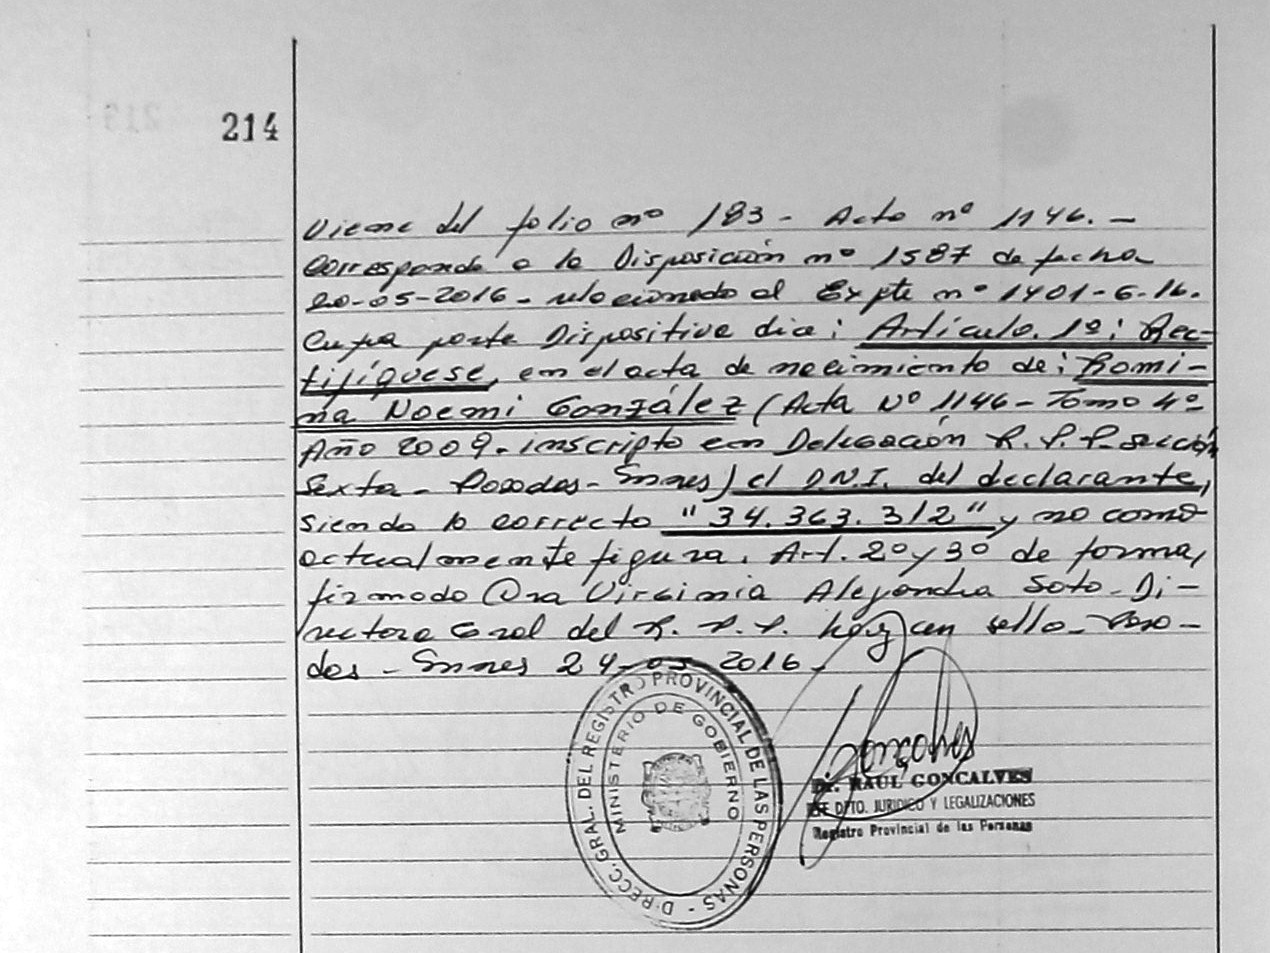 214
Viene del folio nº 183 - Acta nº 1146. -
Corresponde a la Disposición nº 1587 de fecha
20-05-2016 - relacionado al Expte nº 1401-G-16.
Cuya parte Dispositiva dice: Artículo 1º: Rec-
tifíquese, en el acta de nacimiento de: Romi-
na Noemi González (Acta Nº 1146 - Tomo 4º
Año 2009 - inscripto en Delegación R. P. P. sección
Sexta - Posadas - Mnes) el D.N.I. del declarante,
siendo lo correcto "34.363.312" y no como
actualmente figura. Art. 2º y 3º de forma,
firmado Dra Virginia Alejandra Soto - Di-
rectora Gral del R. P. P. hay un sello - Posa-
das - Mnes 24-05 2016 -
D·RECC. GRAL. DEL REGISTRO PROVINCIAL DE LAS PERSONAS -
MINISTERIO DE GOBIERNO
Goncalves
Dr. RAUL GONCALVES
JEFE DPTO. JURIDICO Y LEGALIZACIONES
Registro Provincial de las Personas